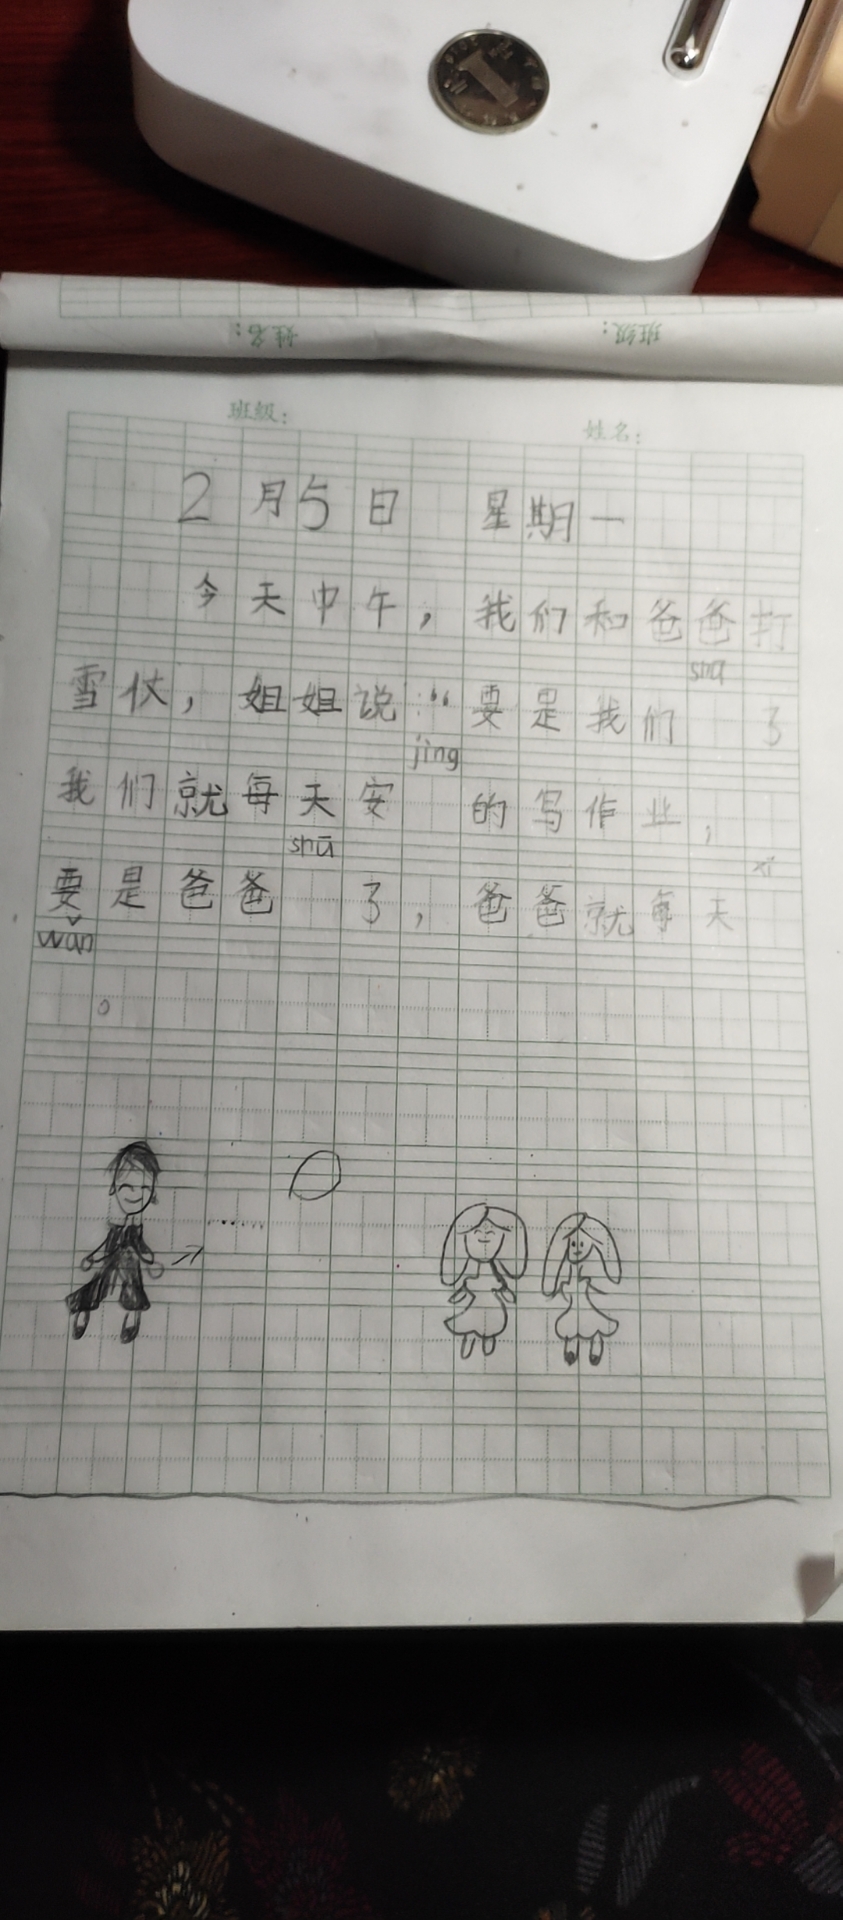 姓名： 班级：
班级： 姓名：
2月5日 星期一
今天中午，我们和爸爸打
shū
雪仗，姐姐说：“要是我们 了
jìng
我们就每天安 的写作业，
shū xǐ
要是爸爸 了，爸爸就每天
wǎn
。